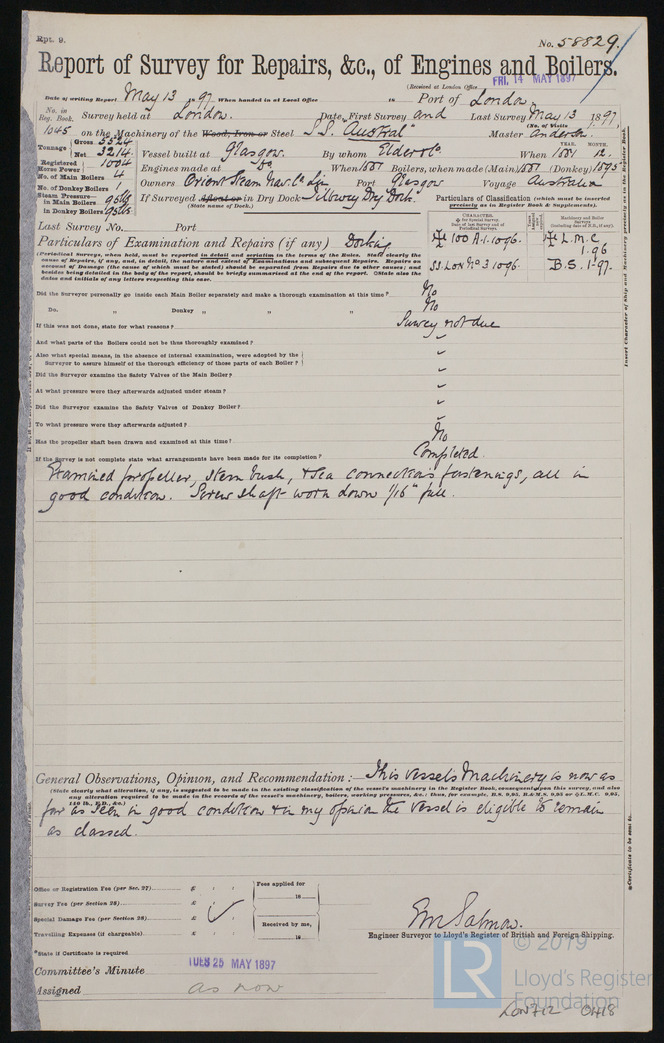 Rpt. 9.
No. 58829.
Report of Survey for Repairs, &c., of Engines and Boilers.
(Received at London Office FRI. 14 MAY 1897
Date of writing Report May 13 1897 When handed in at Local Office 18 Port of London
No. in Reg. Book. Survey held at London. Date, First Survey and Last Survey May 13 1897
(No. of Visits
1045 on the Machinery of the Wood, Iron or Steel S.S. "Austral" Master
Tonnage Gross 5524 Net 3214 Vessel built at Glasgow. By whom Elder & Co When 1881 YEAR. MONTH. 12.
Registered Horse Power 1004 Engines made at Do When 1881 Boilers, when made (Main) 1881 (Donkey) 1893
No. of Main Boilers 4 Owners Orient Steam Nav. Co Lim Port Glasgow Voyage Australia
No. of Donkey Boilers 1
Steam Pressure— in Main Boilers 95 lbs If Surveyed Afloat or in Dry Dock Tilbury Dry Dock.
in Donkey Boilers 95 lbs (State name of Dock.)
Particulars of Classification (which must be inserted precisely as in Register Book & Supplements).
CHARACTER. Machinery and Boiler Surveys
100 A.1. 10.96. L.M.C 1.96
SS. Lon No 3 10.96 B.S. 1.97.
Last Survey No. Port
Particulars of Examination and Repairs (if any) Docking
(Periodical Surveys, when held, must be reported in detail and seriatim in the terms of the Rules. State clearly the
cause of Repairs, if any, and, in detail, the nature and extent of Examinations and subsequent Repairs. Repairs on
account of Damage (the cause of which must be stated) should be separated from Repairs due to other causes; and
besides being detailed in the body of the report, should be briefly summarised at the end of the report. State also the
dates and initials of any letters respecting this case.
Did the Surveyor personally go inside each Main Boiler separately and make a thorough examination at this time? No
Do. " Donkey " " " No
If this was not done, state for what reasons? Survey not due
And what parts of the Boilers could not be thus thoroughly examined?
Also what special means, in the absence of internal examination, were adopted by the
Surveyor to assure himself of the thorough efficiency of those parts of each Boiler?
Did the Surveyor examine the Safety Valves of the Main Boiler?
At what pressure were they afterwards adjusted under steam?
Did the Surveyor examine the Safety Valves of Donkey Boiler?
To what pressure were they afterwards adjusted?
Has the propeller shaft been drawn and examined at this time? No
If the Survey is not complete state what arrangements have been made for its completion? Completed.
Examined propeller, stern bush, & sea connections fastenings, all in
good condition. Screw shaft worn down 1/16" full.
General Observations, Opinion, and Recommendation:— This vessels Machinery is now as
(State clearly what alteration, if any, is suggested to be made in the existing classification of the vessel's machinery in the Register Book, consequent upon this survey, and also
any alteration required to be made in the records of the vessel's machinery, boilers, working pressures, &c.; thus, for example, B.S. 9,95, B.&M.S. 9,95 or L.M.C. 9,95,
140 lb., F.D., &c.)
far as seen in good condition & in my opinion the vessel is eligible to remain
as classed.
Office or Registration Fee (per Sec. 27) £ : :
Survey Fee (per Section 28) £ : :
Special Damage Fee (per Section 28) £ : :
Travelling Expenses (if chargeable) £ : :
Fees applied for
18
Received by me,
18
E.W. Salmon.
Engineer Surveyor to Lloyd's Register of British and Foreign Shipping.
*State if Certificate is required
Committee's Minute TUES 25 MAY 1897
Assigned as now
Insert Character of Ship and Machinery precisely as in the Register Book.
*Certificate to be sent to
LR
© 2019
Lloyd's Register
Foundation
LON712-0418